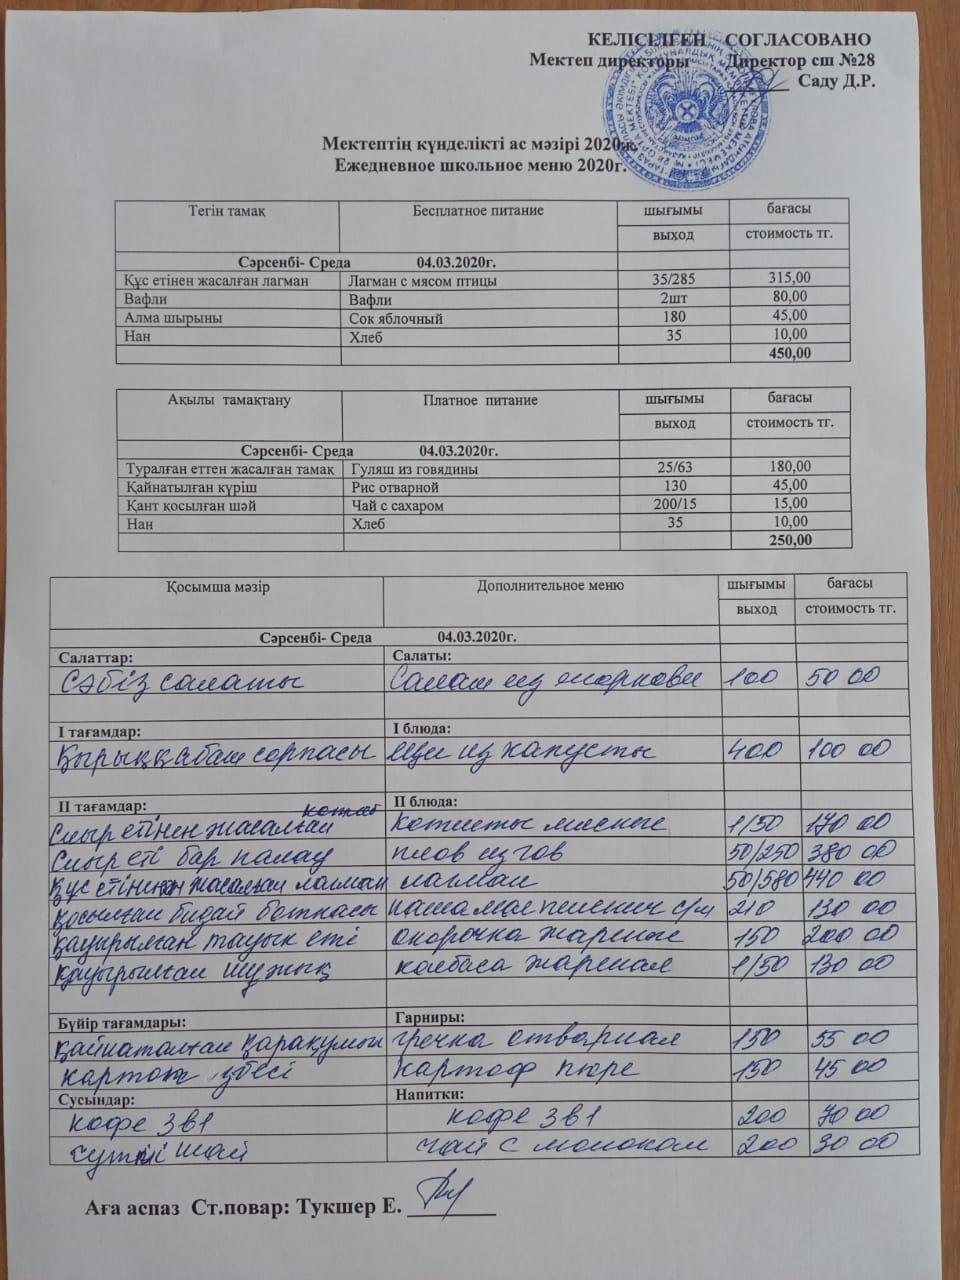 КЕЛІСІЛГЕН СОГЛАСОВАНО
Мектеп директоры Директор сш №28
Саду Д.Р.
Мектептің күнделікті ас мәзірі 2020ж.
Ежедневное школьное меню 2020г.
Тегін тамақ Бесплатное питание шығымы бағасы
выход стоимость тг.
Сәрсенбі- Среда 04.03.2020г.
Құс етінен жасалған лагман Лагман с мясом птицы 35/285 315,00
Вафли Вафли 2шт 80,00
Алма шырыны Сок яблочный 180 45,00
Нан Хлеб 35 10,00
450,00
Ақылы тамақтану Платное питание шығымы бағасы
выход стоимость тг.
Сәрсенбі- Среда 04.03.2020г.
Туралған еттен жасалған тамақ Гуляш из говядины 25/63 180,00
Қайнатылған күріш Рис отварной 130 45,00
Қант қосылған шәй Чай с сахаром 200/15 15,00
Нан Хлеб 35 10,00
250,00
Қосымша мәзір Дополнительное меню шығымы бағасы
выход стоимость тг.
Сәрсенбі- Среда 04.03.2020г.
Салаттар: Салаты:
Сәбіз салаты Салат из моркови 100 50 00
І тағамдар: І блюда:
Қырыққабат сорпасы Щи из капусты 400 100 00
ІІ тағамдар: ІІ блюда:
Сиыр етінен жасалған котлет котлеты мясные 1/50 170 00
Сиыр еті бар палау плов из гов 50/250 380 00
құс етінен жасалған лагман лагман 50/580 440 00
қосылған бидай ботқасы каша пшенич с/м 210 130 00
қауырылған тауық еті окорочка жареные 150 200 00
қауырылған шұжық колбаса жареная 1/50 130 00
Бүйір тағамдары: Гарниры:
қайнаталған қарақұмық гречка отварная 150 55 00
картоп езбесі картоф пюре 150 45 00
Сусындар: Напитки:
кофе 3в1 кофе 3в1 200 70 00
сүтті шай чай с молоком 200 30 00
Аға аспаз Ст.повар: Тукшер Е.